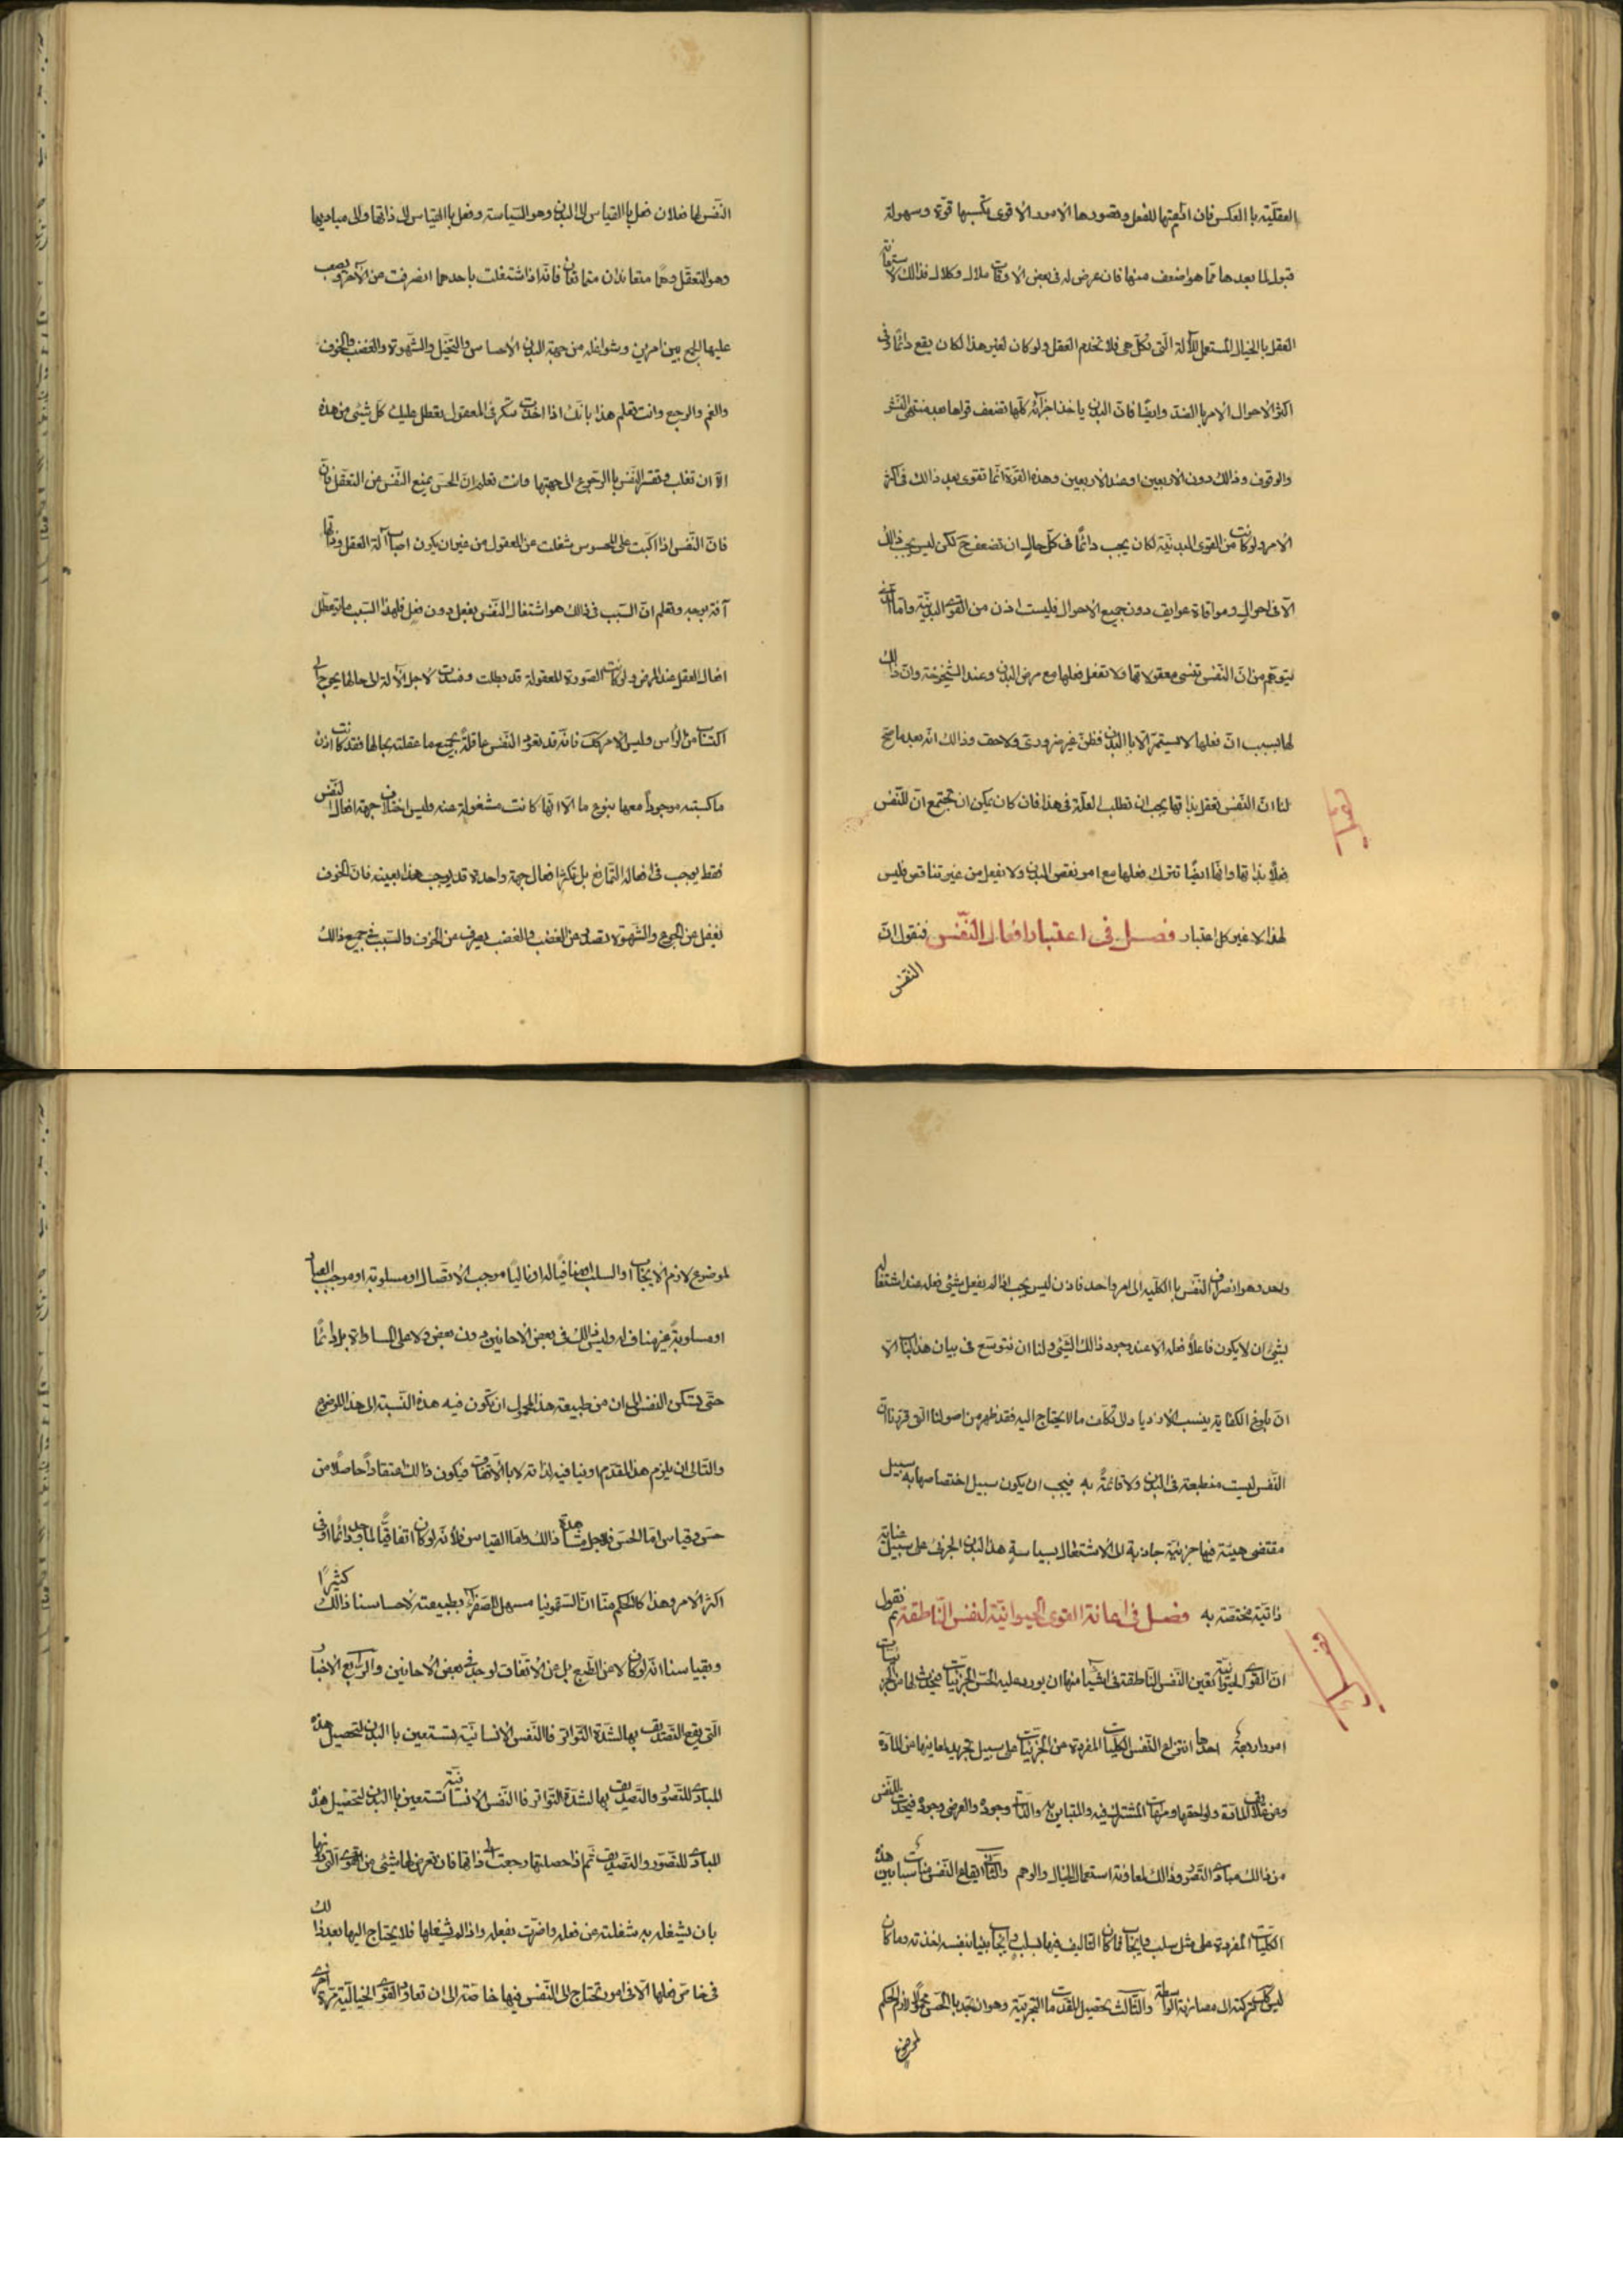 العقليّة با العكس فان ادامتها للفعل وتصورها الامور الاقوى يكسبها قوة وسهولة
قبول لما بعدها ممّا هو اضعف منها فان عرض له فى بعض الاوقات ملال وكلال فذالك لاستعانة
العقل با الخيال المستعمل للآلة الّتى تكلّ هى فلا تخدم العقل ولو كان لغير هذا لكان يقع دائمًا وفى
اكثر الاحوال الامر با الضدّ وايضًا فانّ البدن ياخذ اجزائه كلّها تضعف قواها بعد منتهى النشو
والوقوف وذالك دون الاربعين او عند الاربعين وهذه القوّة انّما تقوى بعد ذالك فى اكثر
الامر ولو كانت من القوى البدنيّة لكان يجب دائمًا فى كلّ حال ان تضعف ح لكن ليس يجب ذالك
الّا فى احوال وموافاة عوايق دون جميع الاحوال فليست اذن من القوى البدنيّة وامّا الّذى
يتوهّم من انّ النّفس تنسى معقولاتها ولا تفعل فعلها مع مرض البدن وعند الشيخوخة وانّ ذالك
لها بسبب انّ فعلها لا يستمرّ الّا با البدن فظنّ غير ضرورىّ ولا حق وذالك انّه بعد ما صحّ
لنا انّ النّفس تعقل بذاتها يجب ان نطلب العلّة فى هذا فان كان يمكن ان تجتمع انّ للنّفس
فعلًا بذاتها وانّها ايضًا تترك فعلها مع امر نقص البدن ولا تفعل من غير تناقض فليس
لهذا الاعتبار فصل فى اعتبار افعال النّفس فنقول انّ
النّفس
النّفس لها فعلان فعل با القياس الى البدن وهو السّياسة وفعل با القياس الى ذاتها والى مباديها
وهو التعقل وهما متعاندان متمانعان فانّه اذا اشتغلت باحدهما انصرفت من الآخر ويصعب
عليها الجمع بين امرين وشواغله من جهة البدن الاحساس والتخيّل والشّهوة والغضب والخوف
والغم والوجع وانت تعلم هذا بانّك اذا اخذت تتفكر فى المعقول يعطل عليك كلّ شيئى من هذه
الّا ان تغلب وتقسر النّفس با الرّجوع الى جهتها وانت تعلم انّ الحسّ يمنع النّفس من التعقّل فانّ
فانّ النّفس اذا اكبّت على المحسوس شغلت عن المعقول من غير ان يكون اصاب آلة العقل وذاتها
آفة بوجه وتعلم انّ السّبب فى ذالك هو اشتغال النّفس بفعل دون فعل فلهذا السّبب ما يتعطّل
افعال العقل عند المرض ولو كانت الصّورة المعقولة قد بطلت وفسدت لاجل الآلة الى حالها يحوج الى
اكتساب من الرّأس وليس الامر كك فانّه قد تعود النّفس عاقلة بجميع ما عقلته بحالها فقد كانت اذن
ما كسبته موجوداً معها بنوع ما الّا انّها كانت مشغولة عنه وليس اختلاف جهة افعال النّفس
فقط يوجب فى افعاله التّمانع بل تكثّر افعال جهة واحدة قد يوجب هذا بعينه فانّ الخوف
يغفل عن الجوع والشّهوة تصدّ عن الغضب والغضب يصرف عن الخوف والسّبب فى جميع ذالك
واحد وهو انصراف النّفس با الكلّيه الى امر واحد فاذن ليس يجب اذا لم يفعل شيئى فعله عند اشتغاله
بشيئى ان لا يكون فاعلًا فعله الّا عند وجود ذالك الشّيئى ولنا ان نتوسّع فى بيان هذا الباب الّا
انّ بلوغ الكفاية ينسب الازدياد الى تكلّف ما لا يحتاج اليه فقد ظهر من اصولنا الّتى قرّرنا انّ
النّفس ليست منطبعة فى البدن ولا قائمة به فيجب ان يكون سبيل اختصاصها به سبيل
مقتضى هيئة فيها جزئيّة جاذبة الى الاشتغال بسياسة هذا البدن الجزئى على سبيل عناية
ذاتيّة مختصّة به فصل فى اعانة القوى الحيوانيّة لنفس النّاطقة ثم نقول
انّ القوى الحيوانيّة تعين النّفس النّاطقة فى اشيآء منها ان يورد عليه الحسّ الجزئيّات فيحدث لها من الجزئيّات
امور اربعة احدها انتزاع النّفس الكلّيات المفردة عن الجزئيّات على سبيل تجريد لمعانيها عن المادّة
وعن علايق المادّة ولواحقها ومراعات المشترك فيه والمتباين به والذّاتى وجوده والعرضى وجوده فيحدث للنّفس
من ذالك مبادى التصوّر وذالك بمعاونة استعمال الخيال والوهم والثّانى ايقاع النّفس مناسبات بين هذه
الكلّيات المفردة على مثل سلب وايجاب فما كان التاليف فيها بسلب وايجاب بيّنا بنفسه اخذته وما كان
ليس كك تركته الى مصادفة الواسطة والثّالث تحصيل المقدّمات التّجربيّة وهو ان نجد با الحسّ محمولًا لازم الحكم
لموضوع
لموضوع لازم الايجاب او السلب او منافيًا له او تاليًا موجب الاتّصال او مسلوبة او موجب العناد
او مسلوبة غير مناف له وليس ذالك فى بعض الاحانين دون بعض ولا على المساواة بل دائمًا
حتّى تسكن النّفس الى ان من طبيعة هذا المحمول ان تكون فيه هذه النّسبة الى هذا الموضوع
والتّالى ان يلزم هذا المقدّم او ينافيه لذاته لا با الاتّفاق فيكون ذالك اعتقاداً حاصلًا من
حسّ وقياس امّا الحسّ فلاجل مشاهدة ذالك وامّا القياس فلانّه لو كان اتفاقيًّا لما وجد دائمًا او فى
اكثر الامر وهذا كالحكم منّا انّ السّقمونيا مسهل للصّفرآء بطبيعته لاحساسنا ذالك كثيرًا
وبقياسنا انّه لو كان لا عن الطّبع بل عن الاتّفاق لوجد فى بعض الاحانين والرّابع الاخبار
الّتى يقع التّصديق بها لشدّة التّواتر فا النّفس الانسانيّة تستعين با البدن لتحصيل هذه
المبادى للتّصوّر والتّصديق بها لشدّة التّواتر فا النّفس الانسانيّة تستعين با البدن لتحصيل هذه
المبادى للتّصوّر والتّصديق ثمّ اذا حصلتها رجعت الى ذاتها فان تعرض لها شيئى من القوى الّتى دونها
بان تشغله به شغلته عن فعله واضرّت بفعله واذا لم تشغلها فلا يحتاج اليها بعد ذالك
فى خاصّ فعلها الّا فى امور تحتاج الى النّفس فيها خاصّة الى ان تعاود القوى الخياليّة مرّة اخرى